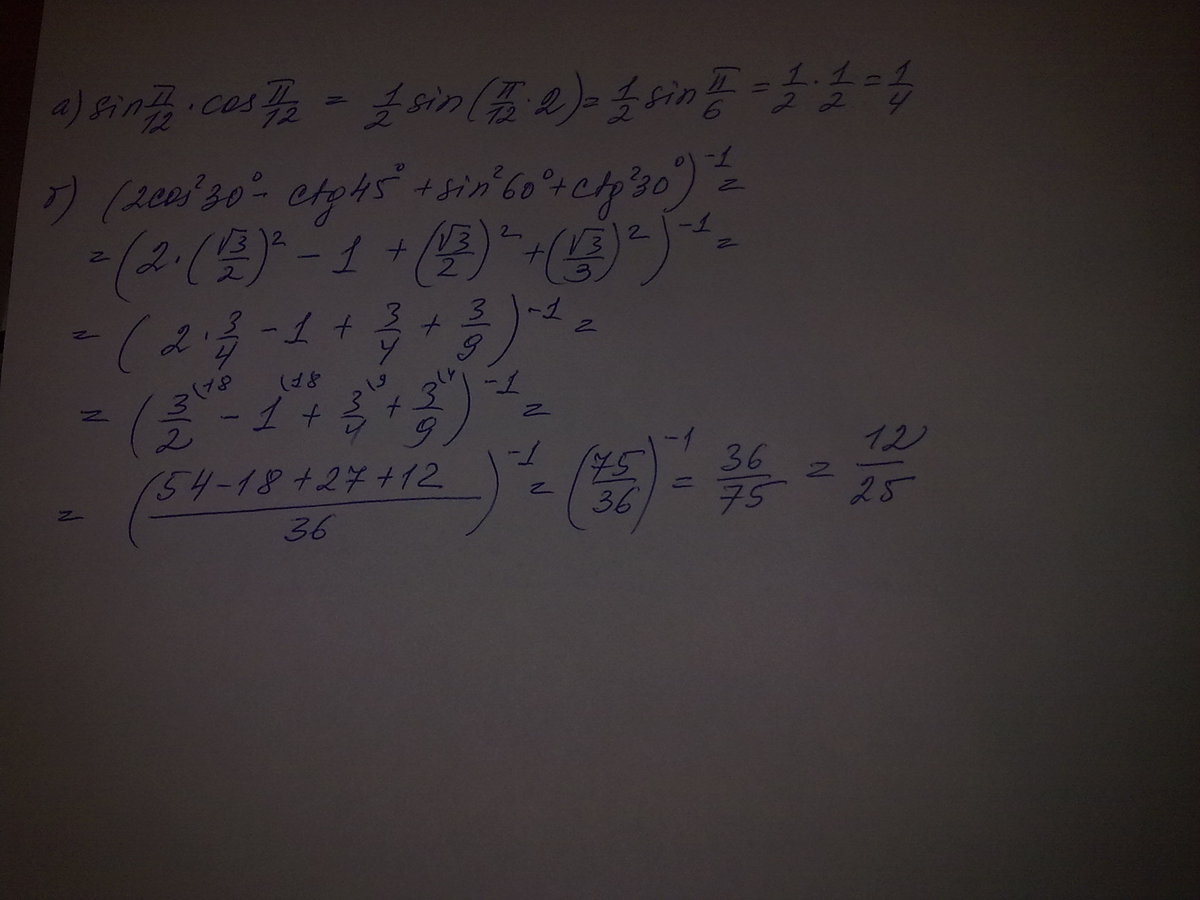 а) sin π/12 · cos π/12 = 1/2 sin (π/12 · 2) = 1/2 sin π/6 = 1/2 · 1/2 = 1/4
б) (2cos²30° - ctg45° + sin²60° + ctg²30°)⁻¹ =
= (2 · (√3/2)² - 1 + (√3/2)² + (√3/3)²)⁻¹ =
= (2 · 3/4 - 1 + 3/4 + 3/9)⁻¹ =
= (3/2 ⁽¹⁸ - 1 ⁽¹⁸ + 3/4 ⁽⁹ + 3/9 ⁽⁴)⁻¹ =
= ((54 - 18 + 27 + 12)/36)⁻¹ = (75/36)⁻¹ = 36/75 = 12/25